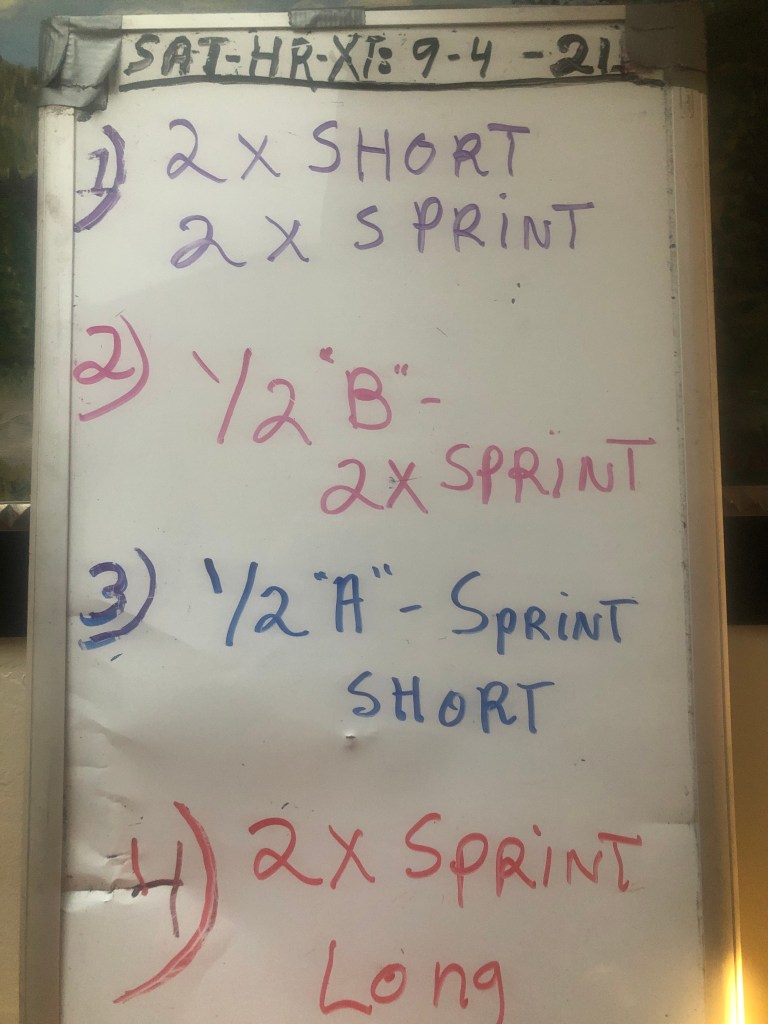 SAT-HR-XT: 9-4-21
1) 2X SHORT
2X SPRINT
2) 1/2 "B"-
2X SPRINT
3) 1/2 "A"- SPRINT
SHORT
4) 2X SPRINT
Long